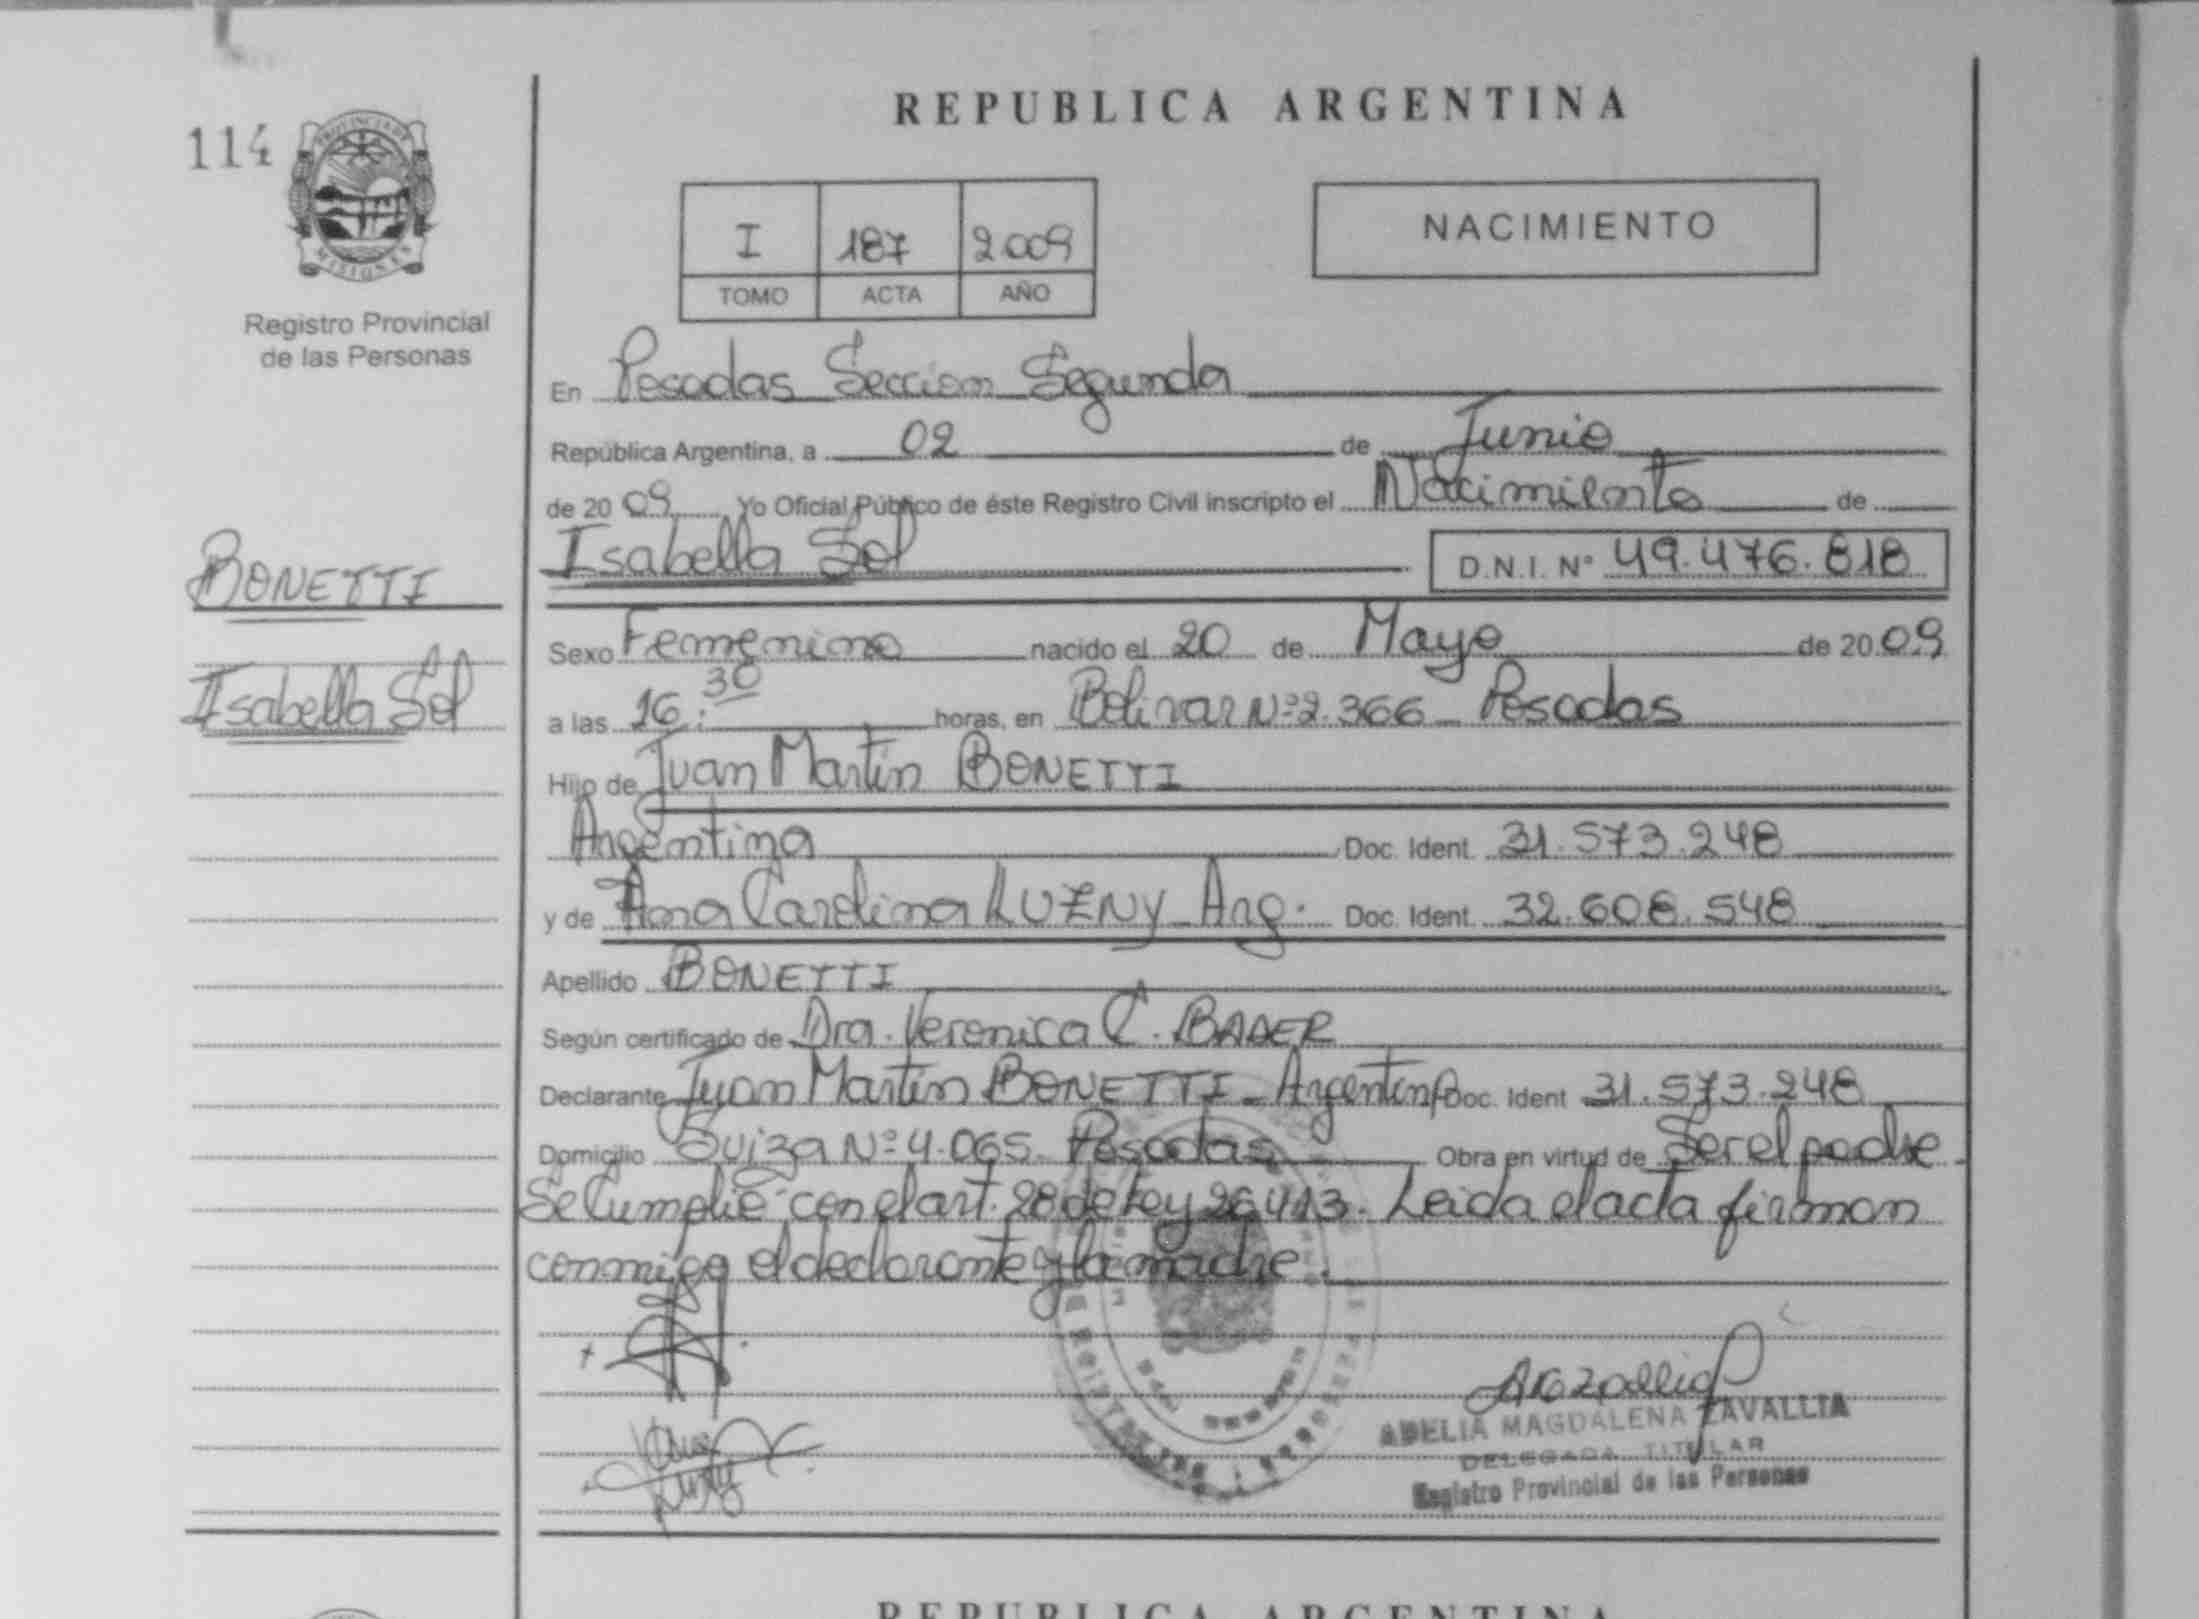 REPUBLICA ARGENTINA
114
PROVINCIA DE
MISIONES
Registro Provincial
de las Personas
I 187 2009
TOMO ACTA AÑO
NACIMIENTO
En Posadas Seccion Segunda
República Argentina, a 02 de Junio
de 2009 Yo Oficial Público de éste Registro Civil inscripto el Nacimiento de
BONETTI
Isabella Sol
Isabella Sol D.N.I. Nº 49.476.818
Sexo Femenino nacido el 20 de Mayo de 2009
a las 16:30 horas, en Bolivar Nº 2.366 Posadas
Hijo de Juan Martin BONETTI
Argentina Doc. Ident. 31.573.248
y de Ana Carolina LUZNY Arg. Doc. Ident. 32.608.548
Apellido BONETTI
Según certificado de Dra. Veronica C. BADER
Declarante Juan Martin BONETTI Argentina Doc. Ident 31.573.248
Domicilio Suiza Nº 4.065 Posadas Obra en virtud de Ser el padre
Se Cumplió con el art. 28 de Ley 26.413. Leida el acta firman
conmigo el declarante y la madre.
ADELIA MAGDALENA ZAVALLIA
DELEGADA TITULAR
Registro Provincial de las Personas
REPUBLICA ARGENTINA